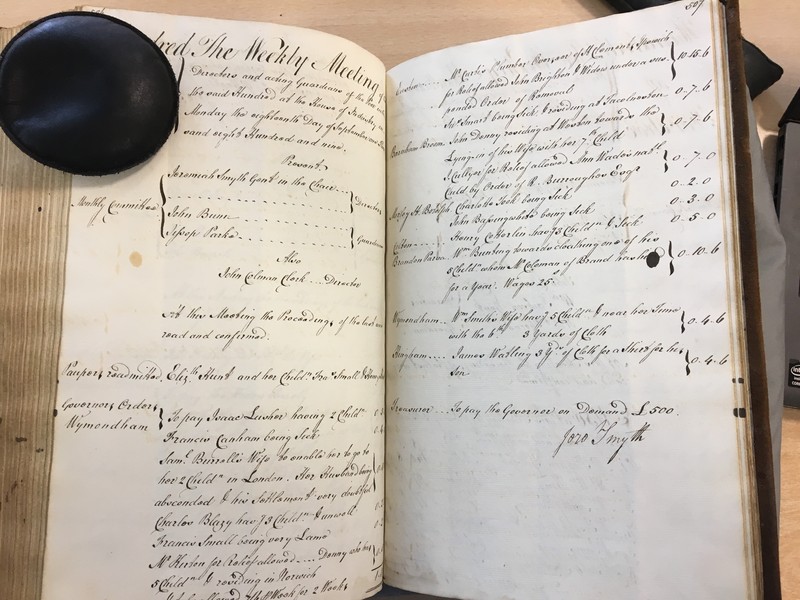 The Weekly Meeting of
Directors and acting Guardians of the Poor
the said Hundred at the House of Industry
Monday the eighteenth Day of September
sand eight Hundred and nine.
Present
Jeremiah Smyth Gent in the Chair
Monthly Committee
John Bunn
Director
Jessop Parke
Guardian
Also
John Colman Clerk .... Director
At this Meeting the Proceedings of the last were
read and confirmed.
Paupers readmitted. Eliz. Hunt and her Childn. Fras. Small &
Governors Orders
Wymondham
To pay Isaac Lusher having 2 Childn.
Francis Canham being Sick
Saml. Burrells Wife to enable her to go to
her 2 Childn in London. Her Husband being
absconded & his Settlement very doubtful
Charles Blazy has 3 Childn. & unwell
Francis Small being very Lame
for Relief allowed .... Denny who has
5 Childn. & residing in Norwich
Week for 2 Weeks
507
Mr. Curtis Plumber Overseer of St. Clements Ipswich
for Relief allowed John Brighton & Widow under a sus
pended Order of Removal
10-15-6
Smart being Sick & residing at Tacolneston
0-7-6
Barnham Broom. John Denny residing at Weston towards the
Lying in of his Wife with her 7th. Child
0-7-6
for Relief allowed Ann Wades natl.
Child by Order of R. Burroughes Esqr.
0-7-0
Morley St. Botolph Charlotte Tock being Sick
0-2-0
John Basingwhite being Sick
0-3-0
Henry Cotterlin has 3 Childn. & Sick
0-5-0
Brandon Parva Wm. Bunting towards cloathing one of his
5 Childn. whom Mr. Coleman of Brand has
for a Year. Wages 25s
0-10-6
Wymondham.. Wm. Smiths Wife has 5 Childn. & near her Time
with the 6th. 3 Yards of Cloth
0-4-6
Hingham.... James Watling 3 Yds. of Cloth for a Shirt for his
Son
0-4-6
Treasurer... To pay the Governor on Demand £500.
Jere Smyth